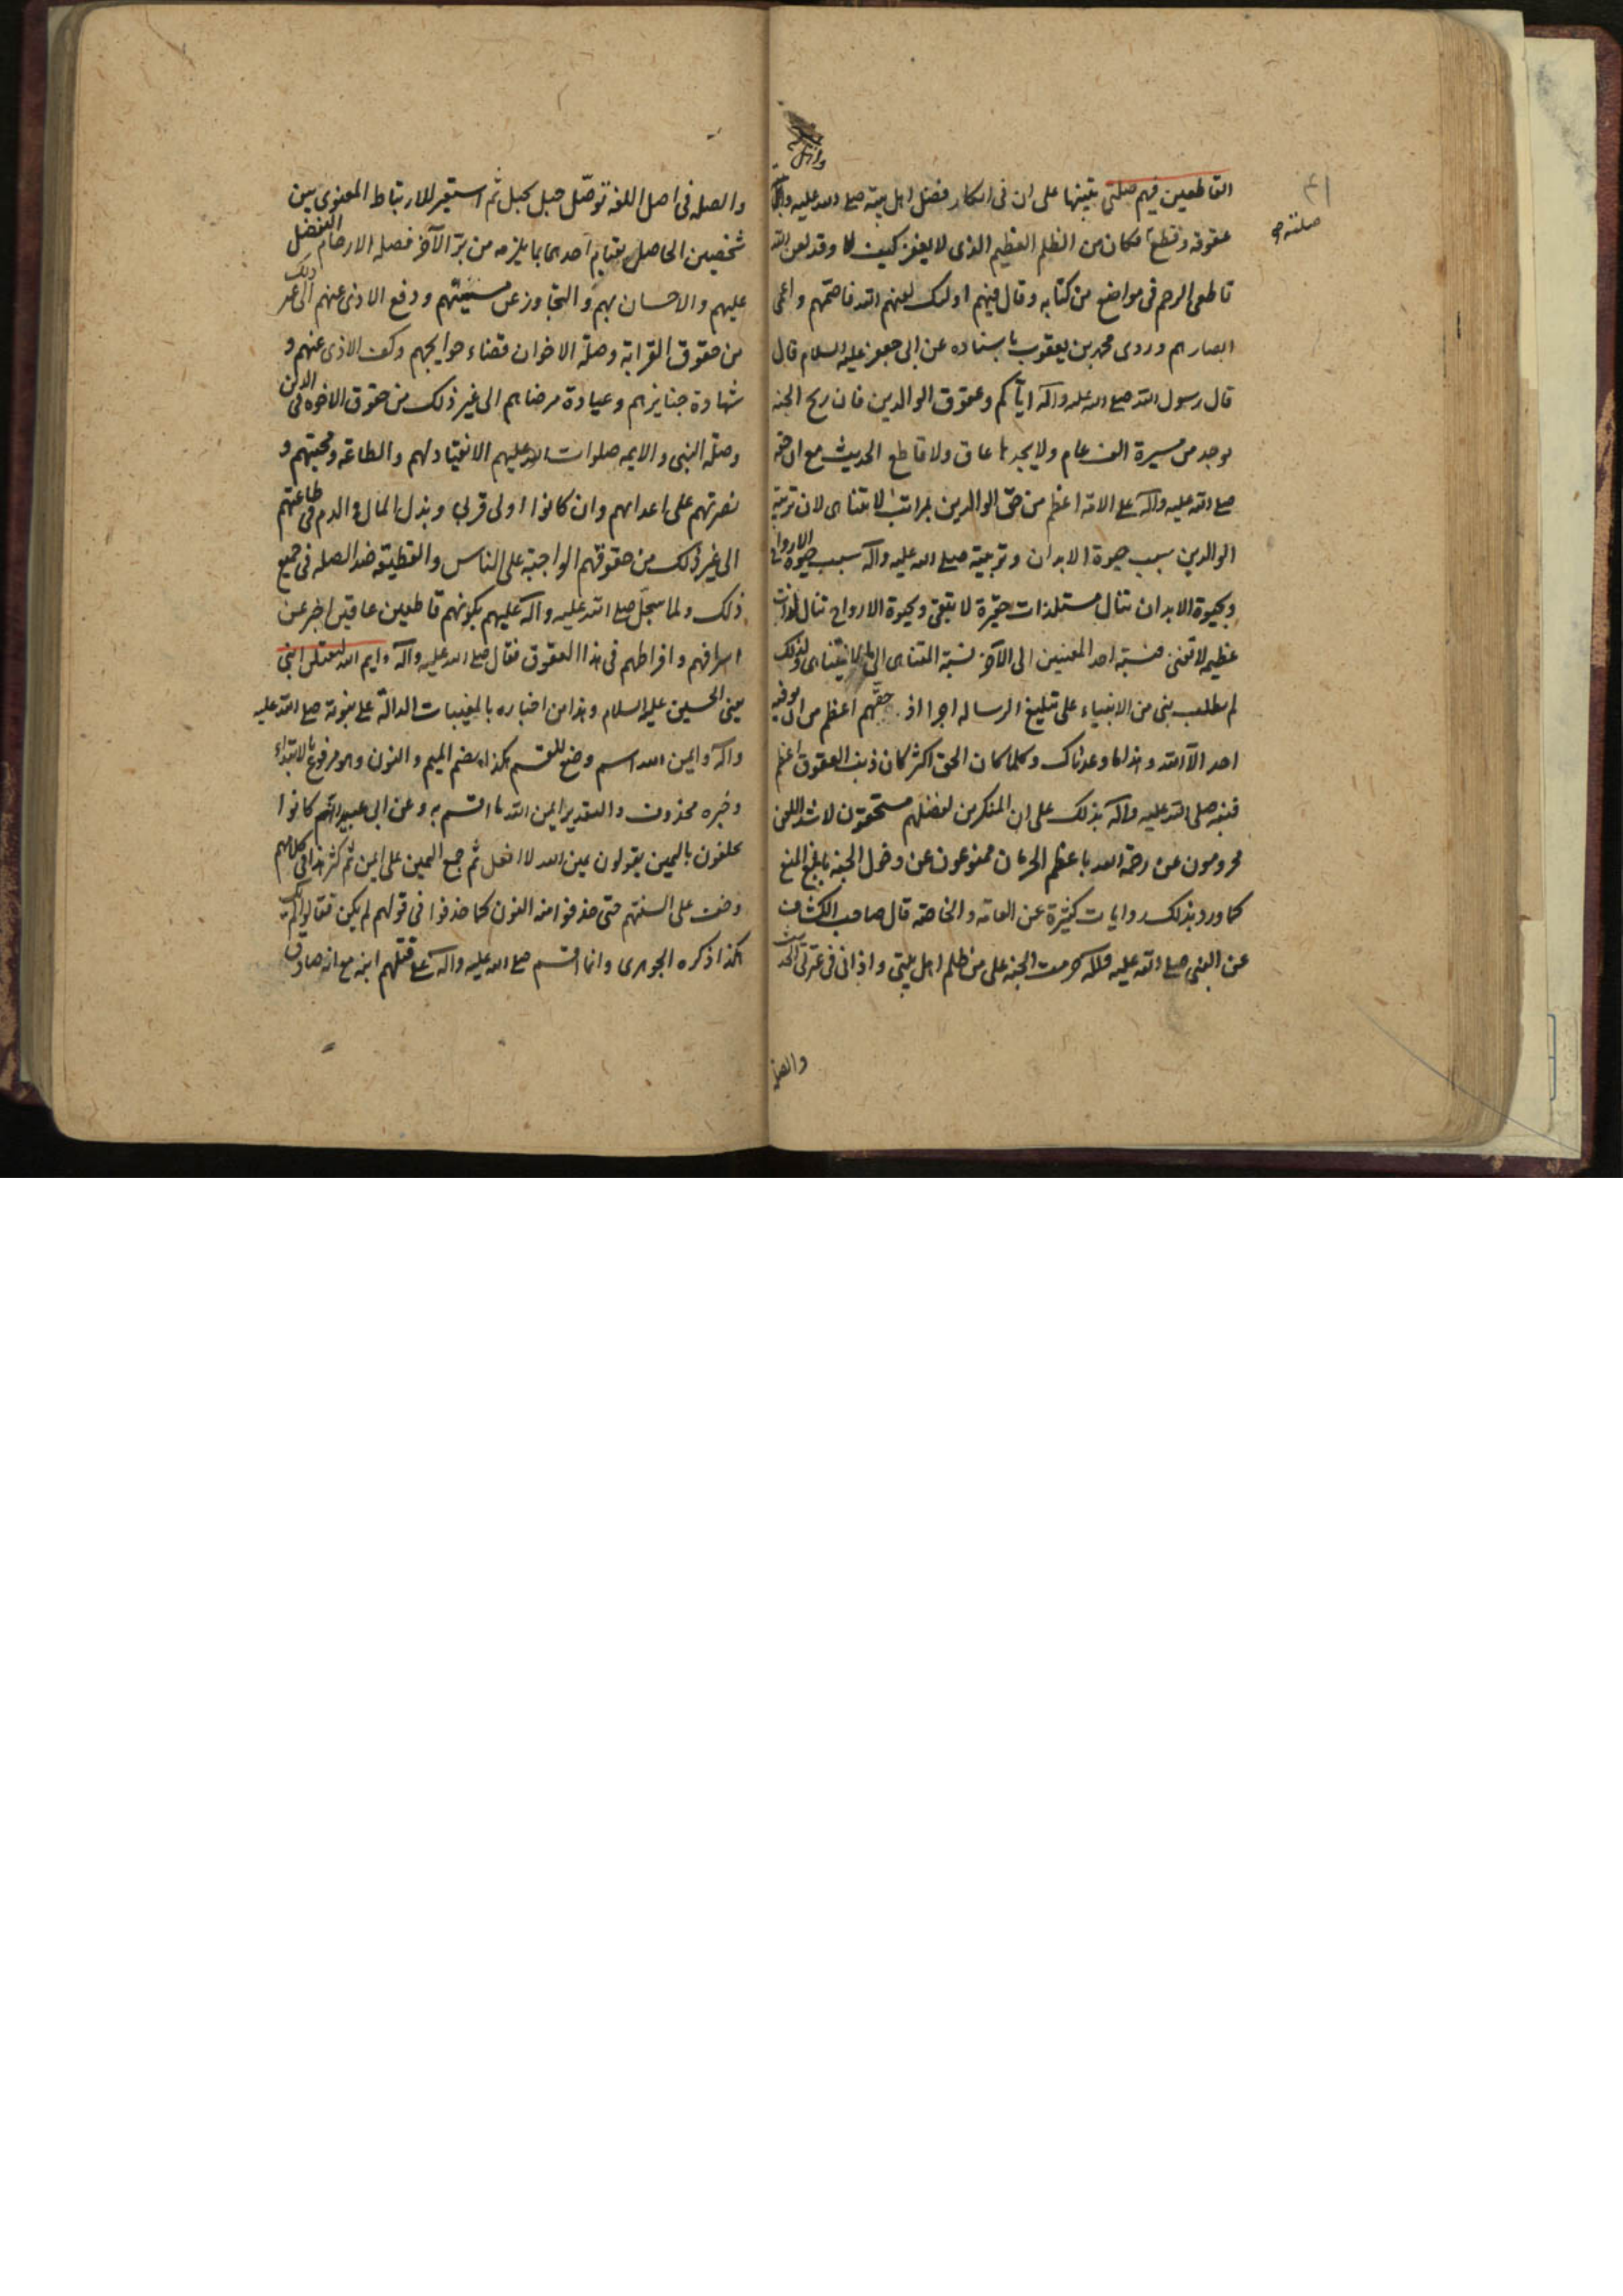 القاطعين فيهم صلتي تنبيها على ان في انكار فضل اهل بيته صلى الله عليه وآله
عقوقه وقطع فكان من الظلم العظيم الذي لا يغفر كيف لا وقد لعن الله
قاطعى الرحم في مواضع من كتابه وقال فيهم اولئك لعنهم الله فاصمهم واعمى
ابصارهم وروى محمد بن يعقوب باسناده عن ابى جعفر عليه السلام قال
قال رسول الله صلى الله عليه وآله اياكم وعقوق الوالدين فان ريح الجنه
توجد من مسيرة الف عام ولا يجدها عاق ولا قاطع الحديث مع ان حقه
صلى الله عليه وآله على الامة اعظم من حق الوالدين بمراتب لا تتناهى لان تربية
الوالدين سبب حيوة الابدان وتربيته صلى الله عليه وآله سبب حيوة الارواح
وبحيوة الابدان تنال مستلذات حقيرة لا تبقى وبحيوة الارواح تنال لذات
عظيمه لا تفنى فنسبة احد المعنيين الى الآخر نسبة المتناهى الى ما لا يتناهى ولذلك
لم يطلب نبى من الانبياء على تبليغ الرساله اجرا اذ حقهم اعظم من ان يوفيه
احد الا الله وهذا ما وعدناك وكلما كان الحق اكثر كان ذنب العقوق اعظم
فنبه صلى الله عليه وآله بذلك على ان المنكرين لفضلهم مستحقون لاشد اللعن
محرومون عن رحمة الله باعظم الحرمان ممنوعون عن دخول الجنه بابلغ المنع
كما ورد بذلك روايات كثيرة عن العامة والخاصة قال صاحب الكشاف
عن النبى صلى الله عليه وآله حرمت الجنه على من ظلم اهل بيتى واذانى في عترتى الحديث
والصلة
صلته
والصله فى اصل اللغه توصّل حبل بحبل ثم استعير للارتباط المعنوى بين
شخصين الحاصل بقيام احدهما بما يلزمه من برّ الآخر فصله الارحام التفضل
عليهم والاحسان بهم والتجاوز عن مسيئتهم ودفع الاذى عنهم الى غير ذلك
من حقوق القرابة وصلة الاخوان قضاء حوايجهم وكف الاذى عنهم و
شهادة جنايزهم وعيادة مرضاهم الى غير ذلك من حقوق الاخوه فى الدين
وصلة النبى والايمه صلوات الله عليهم الانقياد لهم والطاعة ومحبتهم و
نصرتهم على اعدائهم وان كانوا اولى قربى وبذل المال والدم فى طاعتهم
الى غير ذلك من حقوقهم الواجبة على الناس والقطيعة ضد الصله فى جميع
ذلك ولما سجل صلى الله عليه وآله عليهم بكونهم قاطعين عاقين اخبر عن
اسرافهم وافراطهم فى هذا العقوق فقال صلى الله عليه وآله وايم الله لتقتلن ابنى
يعنى الحسين عليه السلام وهذا من اخباره بالمغيبات الدالة على نبوته صلى الله عليه
وآله وايمن الله اسم وضع للقسم هكذا بضم الميم والنون وهو مرفوع بالابتداء
وخبره محذوف والتقدير ايمن الله ما اقسم به وعن ابى عبيد انهم كانوا
يحلفون باليمين يقولون يمين الله لا افعل ثم جمع اليمين على ايمن ثم كثر هذا فى كلامهم
وخف على السنتهم حتى حذفوا منه النون كما حذفوا فى قولهم لم يكن فقالوا لم يك
هكذا ذكره الجوهرى وانما اقسم صلى الله عليه وآله على قتلهم ابنه مع انه صادق